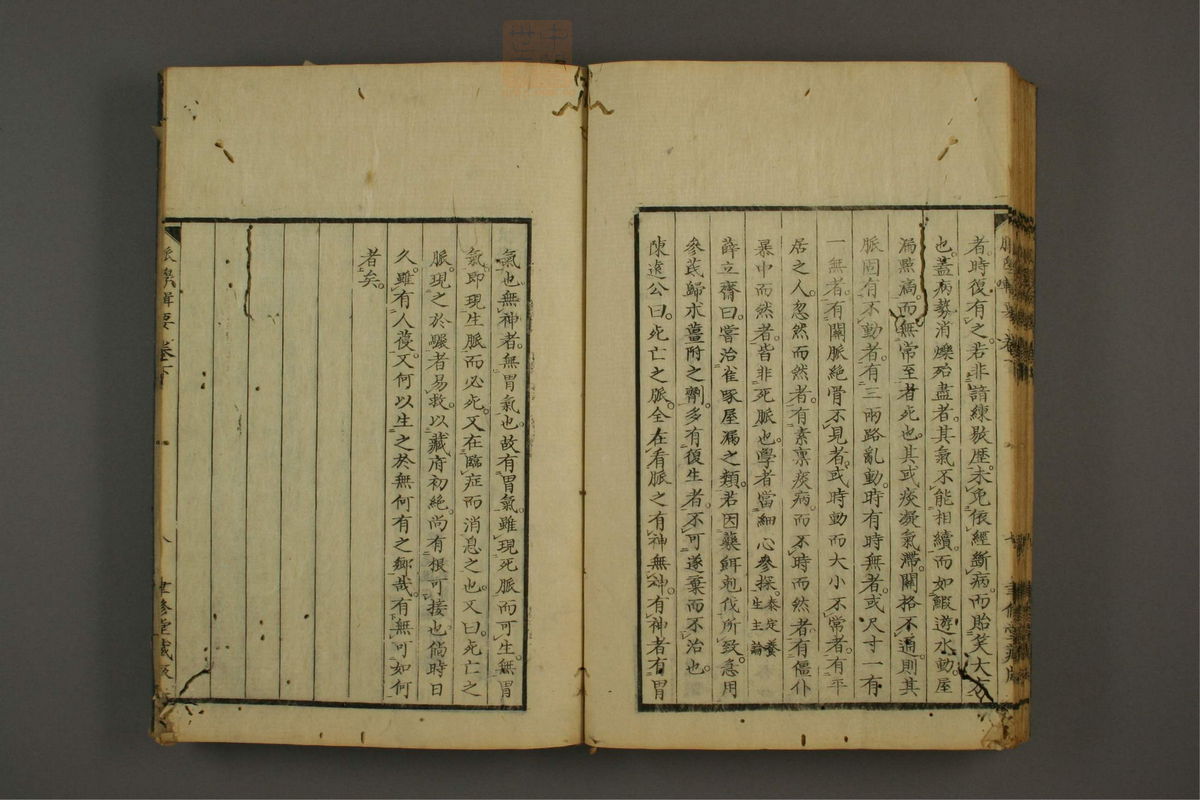 者時復有之若非諳練歇歷未免依經斷病而貽笑大方
也蓋病勢消爍殆盡者其氣不能相續而如鰕遊水動屋
漏點滴而無常至者死也其或痰凝氣滯關格不通則其
脈固有不動者有三兩路亂動時有時無者或尺寸一有
一無者有關脈絕骨不見者或時動而大小不常者有平
居之人忽然而然者有素禀痰病而不時而然者有僵仆
暴中而然者皆非死脈也學者當細心參探泰定養生主論
薛立齋曰嘗治雀啄屋漏之類若因藥餌剋伐所致急用
參芪歸朮薑附之劑多有復生者不可遂棄而不治也
陳遠公曰死亡之脈全在看脈之有神無神有神者有胃
氣也無神者無胃氣也故有胃氣雖現死脈而可生無胃
氣即現生脈而必死又在臨症而消息之也又曰死亡之
脈現之於驟者易救以藏府初絕尚有根可接也倘時日
久雖有人葠又何以生之於無何有之鄉哉有無可如何
者矣
脈學輯要卷下
八
聿修堂藏版